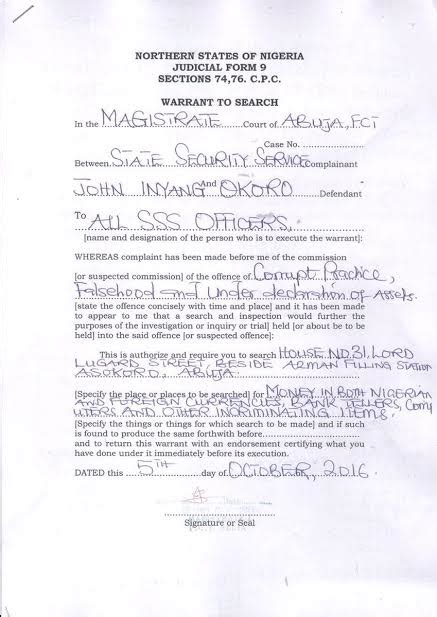 NORTHERN STATES OF NIGERIA
JUDICIAL FORM 9
SECTIONS 74,76. C.P.C.
WARRANT TO SEARCH
In the MAGISTRATE Court of ABUJA, FCT
Case No. ....................
Between STATE SECURITY SERVICE Complainant
And
JOHN INYANG OKORO Defendant
To ALL SSS OFFICERS,
[name and designation of the person who is to execute the warrant]:
WHEREAS complaint has been made before me of the commission
[or suspected commission] of the offence of Corrupt Practice,
Falsehood and Under declaration of Assets.
[state the offence concisely with time and place] and it has been made
to appear to me that a search and inspection would further the
purposes of the investigation or inquiry or trial] held [or about to be
held] into the said offence [or suspected offence]:
This is authorize and require you to search HOUSE NO. 31, LORD
LUGARD STREET, BESIDE ARMAN FILLING STATION
ASOKORO, ABUJA
[Specify the place or places to be searched] for MONEY IN BOTH NIGERIAN
AND FOREIGN CURRENCIES, BANK TELLERS, Comp
UTERS AND OTHER INCRIMINATING ITEMS.
[Specify the things or things for which search to be made] and if such
is found to produce the same forthwith before....................
and to return this warrant with an endorsement certifying what you
have done under it immediately before its execution.
DATED this 5TH day of OCTOBER, 2016.
Signature or Seal